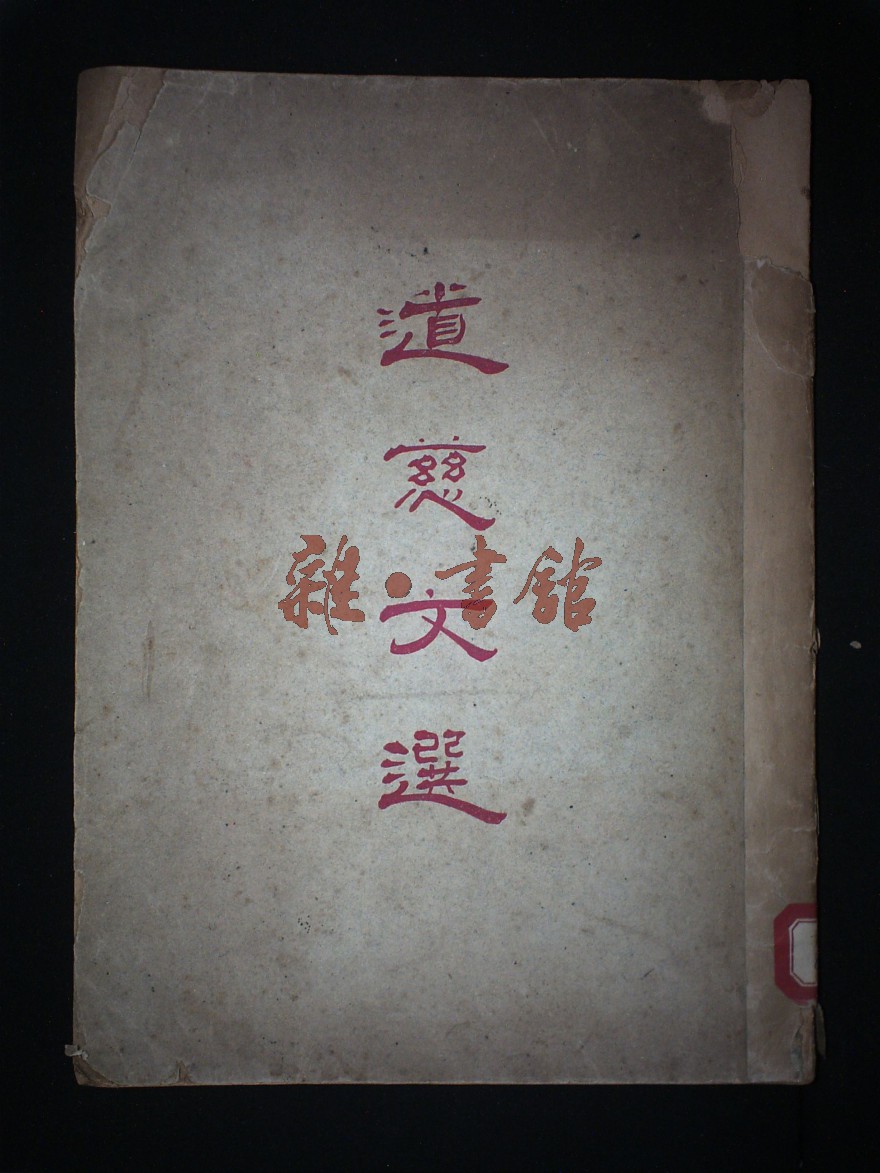 道慈文選
雜·書館